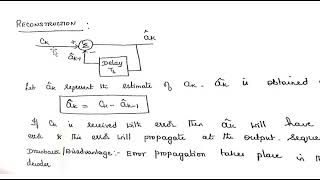 RECONSTRUCTION :
Ck + Σ âk
Tb -
âk-1
DELAY
Tb
Let âk represent the estimate of ak. âk is obtained
âk = Ck - âk-1
If Ck is received with error then âk will have
error & this error will propagate at the output. sequen
Drawback/Disadvantage:- Error propagation takes place in th
decoder